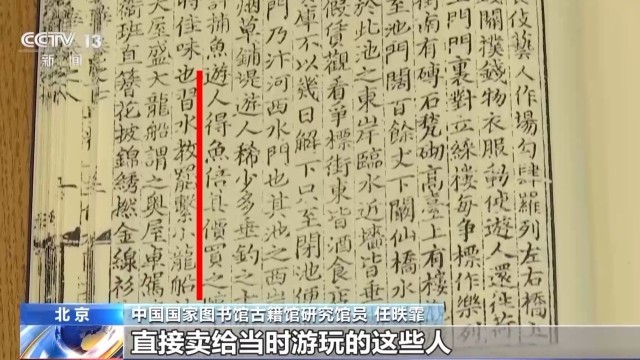 伎藝人作場勾肆羅列左右橋上
錢關撲錢物衣服動使遊人還徃荷
上門門裏對立綵樓每爭標作樂列
街南有磚石甃砌高臺上有樓
至池門闊百餘丈下闞仙橋水
於此池之東岸臨水近墻皆
假賃觀看爭標街東皆酒食店
庫不以幾日解下只至閉池便
門乃汴河西水門也其池之西岸
草鋪堤遊人稀少多垂釣之
捕魚遊人得魚倍其價買之
時佳味也習水教罷繫小龍船
大屋盛大龍船謂之奧屋車駕
衙班直簪花披錦繡撚金線衫
CCTV 13
新闻
北京
中国国家图书馆古籍馆研究馆员 任昳霏
直接卖给当时游玩的这些人